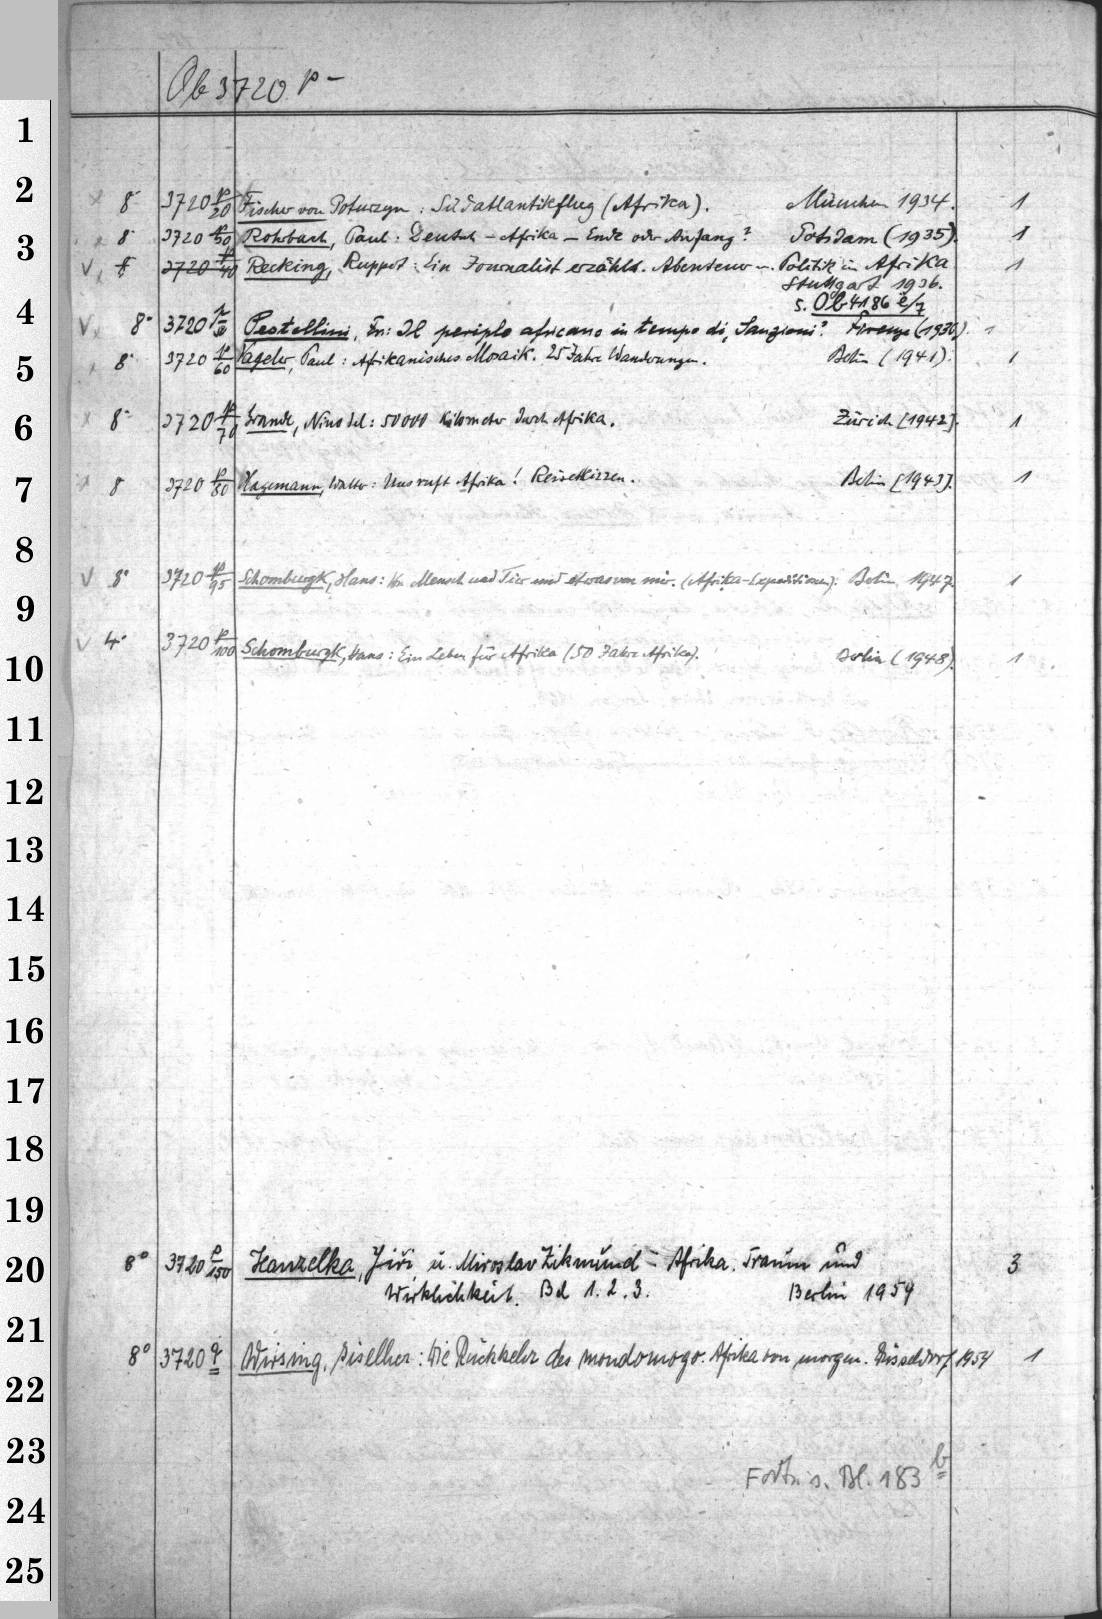 Ob 3720 p –
1
2
8° 3720 p/20 Fischer von Poturzyn: Südatlantikflug (Afrika). München 1934. 1
3
8° 3720 p/30 Rohrbach, Paul: Deutsch-Afrika – Ende oder Anfang? Potsdam (1935). 1
V 3720 p/40 Recking, Ruppert: Ein Journalist erzählt. Abenteuer u. Politik in Afrika 1
Stuttgart 1936.
s. Ob 4186 e/7
4
V 8° 3720 p/ Pestellini, Fr: Il periplo africano in tempo di "Sanzioni". Firenze (1936). 1
5
8° 3720 p/60 Vageler, Paul: Afrikanisches Mosaik. 25 Jahre Wanderungen. Berlin (1941). 1
6
8° 3720 p/70 Grande, Nino del: 50000 Kilometer durch Afrika. Zürich [1942]. 1
7
8 3720 p/80 Hagemann, Walter: Uns ruft Afrika! Reiseskizzen. Berlin [1943]. 1
8
V 8° 3720 p/95 Schomburgk, Hans: Von Mensch und Tier und etwas von mir. (Afrika-Expeditionen). Berlin 1947. 1
9
V 4° 3720 p/100 Schomburgk, Hans: Ein Leben für Afrika (50 Jahre Afrika). Berlin (1948). 1
10
11
12
13
14
15
16
17
18
19
20
8° 3720 p/150 Hanzelka, Jiří u. Miroslav Zikmund: Afrika. Traum und 3
Wirklichkeit. Bd 1. 2. 3. Berlin 1954
21
8° 3720 q Wirsing, Giselher: Die Rückkehr des mondomogo. Afrika von morgen. Düsseldorf 1954 1
22
23
Forts. s. Bl. 183 b
24
25